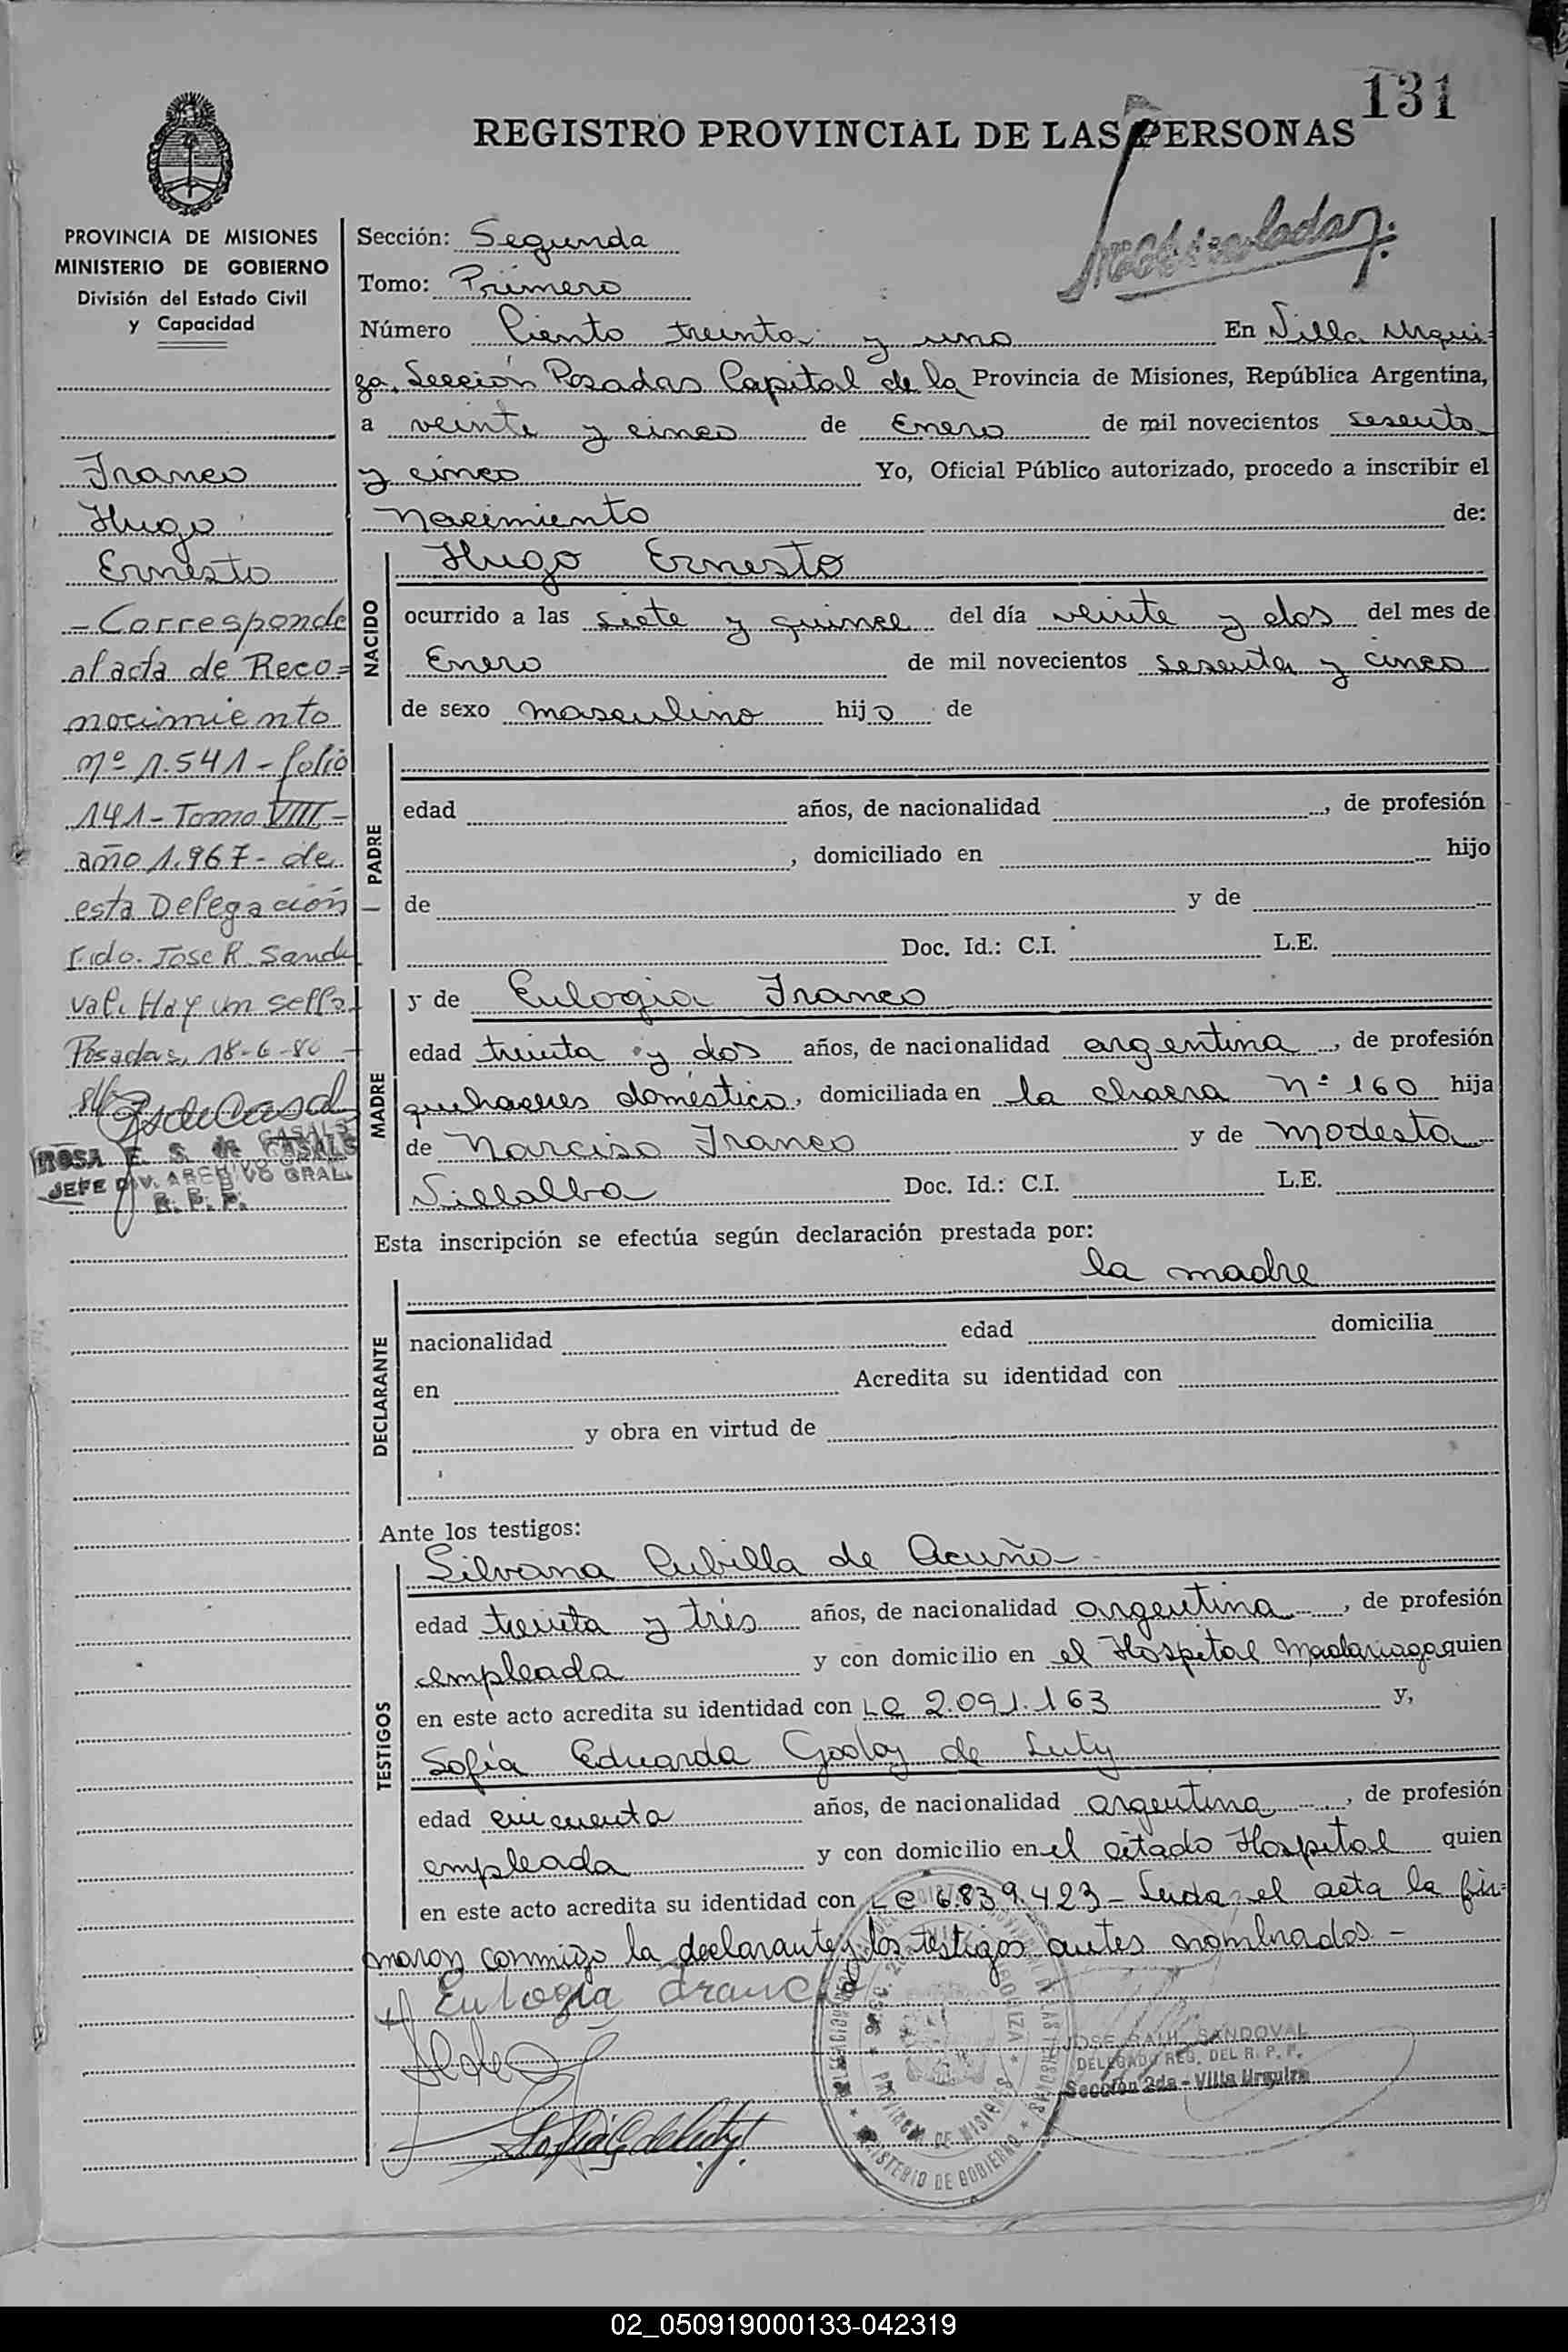 131
REGISTRO PROVINCIAL DE LAS PERSONAS
PROVINCIA DE MISIONES
MINISTERIO DE GOBIERNO
División del Estado Civil
y Capacidad
Franco
Hugo
Ernesto
- Corresponde
al acta de Reco=
nocimiento
nº 1.541 - folio
141 - Tomo VIIII -
año 1.967 - de
esta Delegación
Fido. Jose R. Sando
val. Hay un sello.
Posadas, 18-6-80
ROSA E. S. de CASALS
JEFE DIV. ARCHIVO GRAL.
R. P. P.
Sección: Segunda
Tomo: Primero
Número Ciento treinta y uno En Villa Urqui=
za, Sección Posadas Capital de la Provincia de Misiones, República Argentina,
a veinte y cinco de Enero de mil novecientos sesenta
y cinco Yo, Oficial Público autorizado, procedo a inscribir el
Nacimiento de:
NACIDO
Hugo Ernesto
ocurrido a las siete y quince del día veinte y dos del mes de
Enero de mil novecientos sesenta y cinco
de sexo masculino hijo de
PADRE
edad años, de nacionalidad , de profesión
, domiciliado en hijo
de y de
Doc. Id.: C.I. L.E.
MADRE
y de Eulogia Franco
edad treinta y dos años, de nacionalidad argentina, de profesión
quehaceres doméstico, domiciliada en la chacra Nº 160 hija
de Narciso Franco y de Modesta
Villalba Doc. Id.: C.I. L.E.
Esta inscripción se efectúa según declaración prestada por:
la madre
DECLARANTE
nacionalidad edad domicilia
en Acredita su identidad con
y obra en virtud de
Ante los testigos:
TESTIGOS
Silvana Cubilla de Acuña
edad treinta y tres años, de nacionalidad argentina, de profesión
empleada y con domicilio en el Hospital Madariaga quien
en este acto acredita su identidad con LC 2.091.163 y,
Sofía Eduarda Godoy de Luty
edad cincuenta años, de nacionalidad argentina, de profesión
empleada y con domicilio en el citado Hospital quien
en este acto acredita su identidad con LC 6.839.423 - Leida el acta la fir=
maron conmigo la declarante y los testigos antes nombrados -
Eulogia Franco
JOSE RAUL SANDOVAL
DELEGADO REG. DEL R. P. P.
Sección 2da - Villa Urquiza
PROVINCIA DE MISIONES
MINISTERIO DE GOBIERNO
02_050919000133-042319